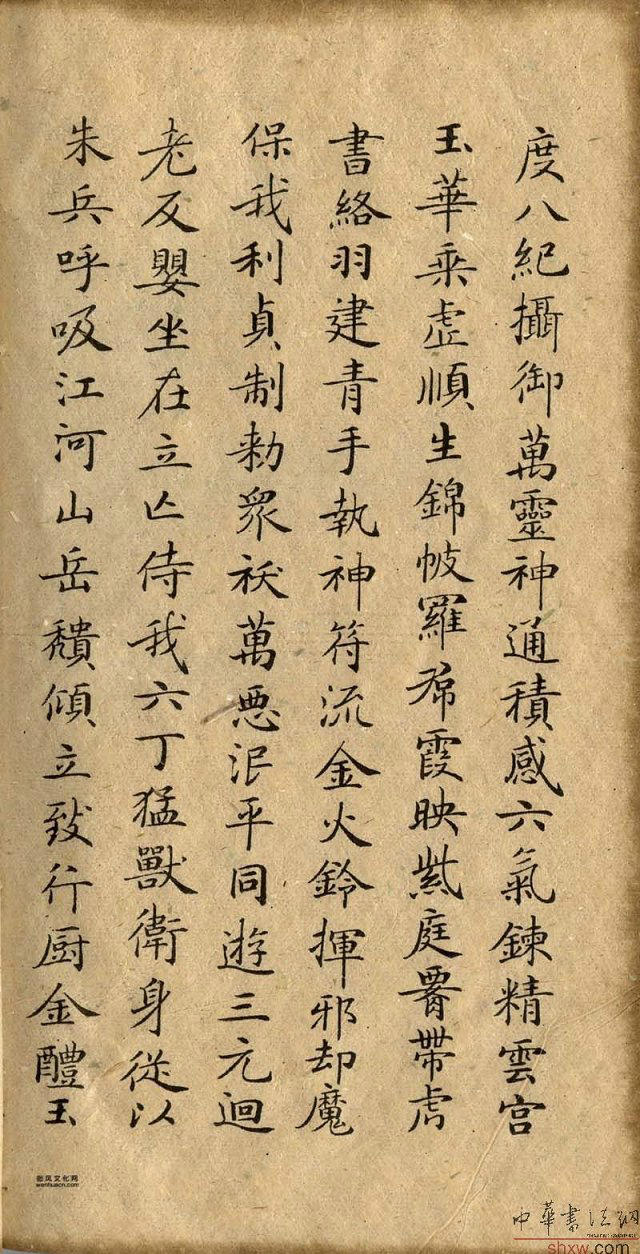 度八紀攝御萬靈神通積感六氣鍊精雲宮
玉華乘虛順生錦帔羅帬霞映紫庭腎帶虎
書絡羽建青手執神符流金火鈴揮邪却魔
保我利貞制勑衆袄萬惡泯平同遊三元迴
老反嬰坐在立亾侍我六丁猛獸衛身從以
朱兵呼吸江河山岳穨傾立致行厨金醴玉
御风文化网
wenhuacn.com
中華書法網
shxw.com